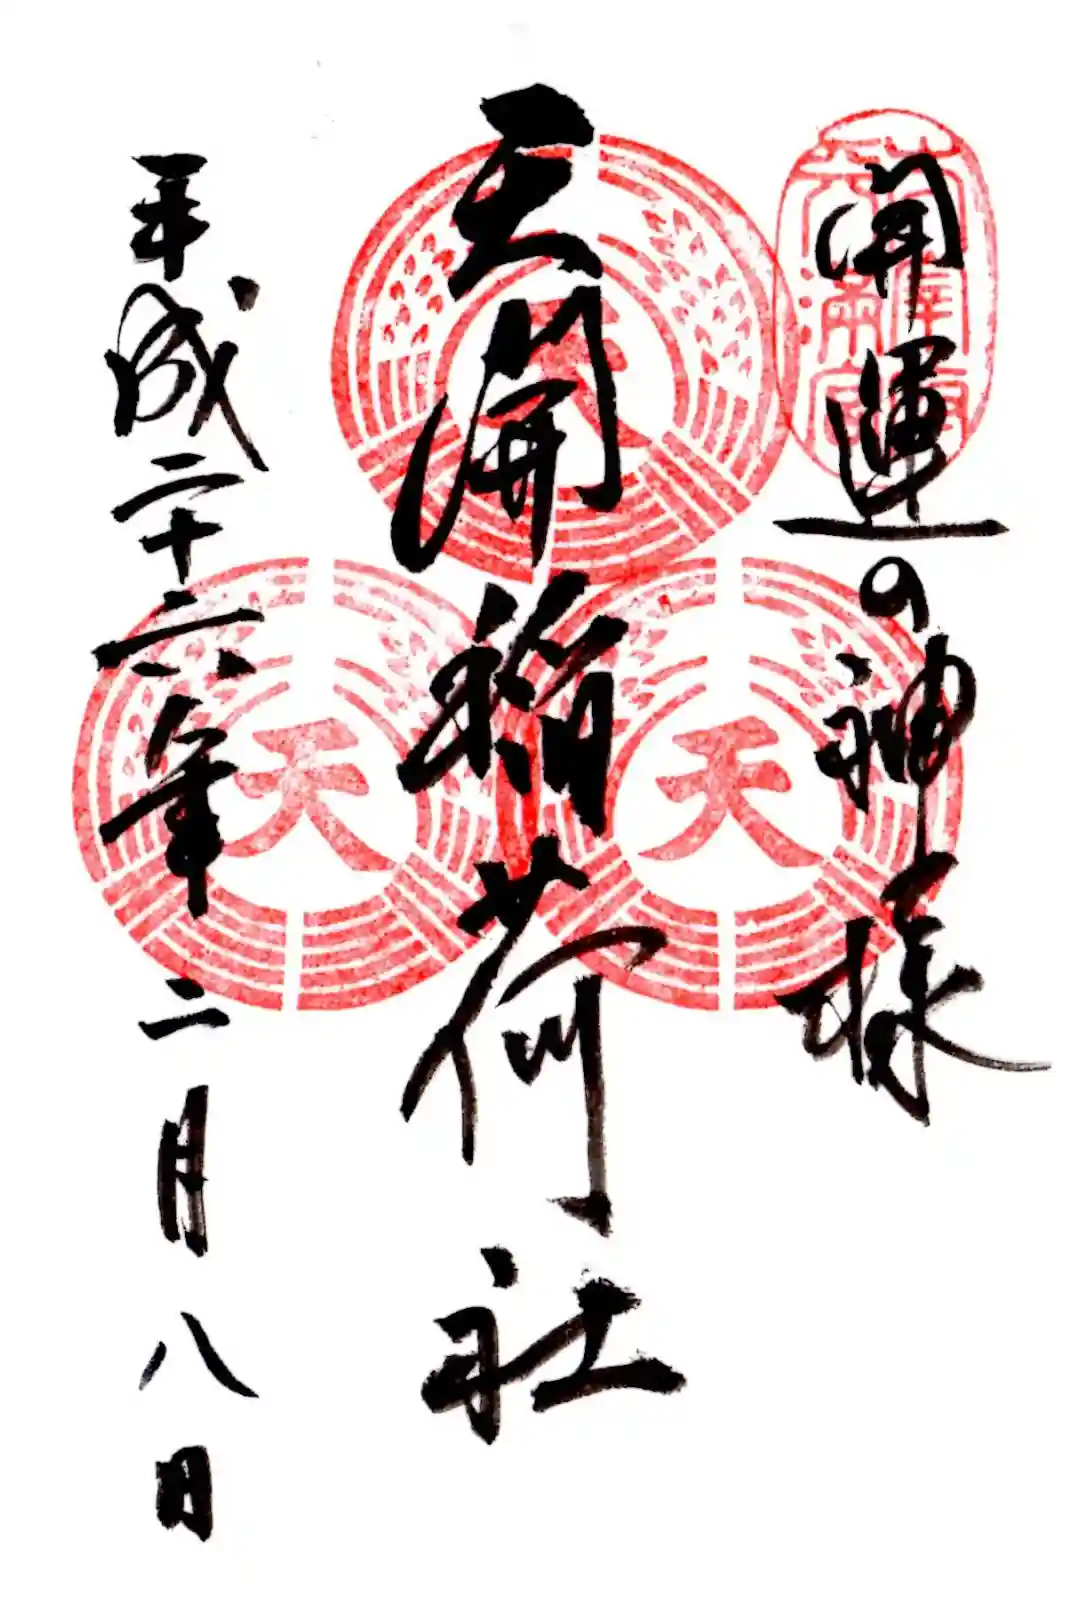 開運の神様
天開稲荷社
平成二十六年二月八日
天
天
天